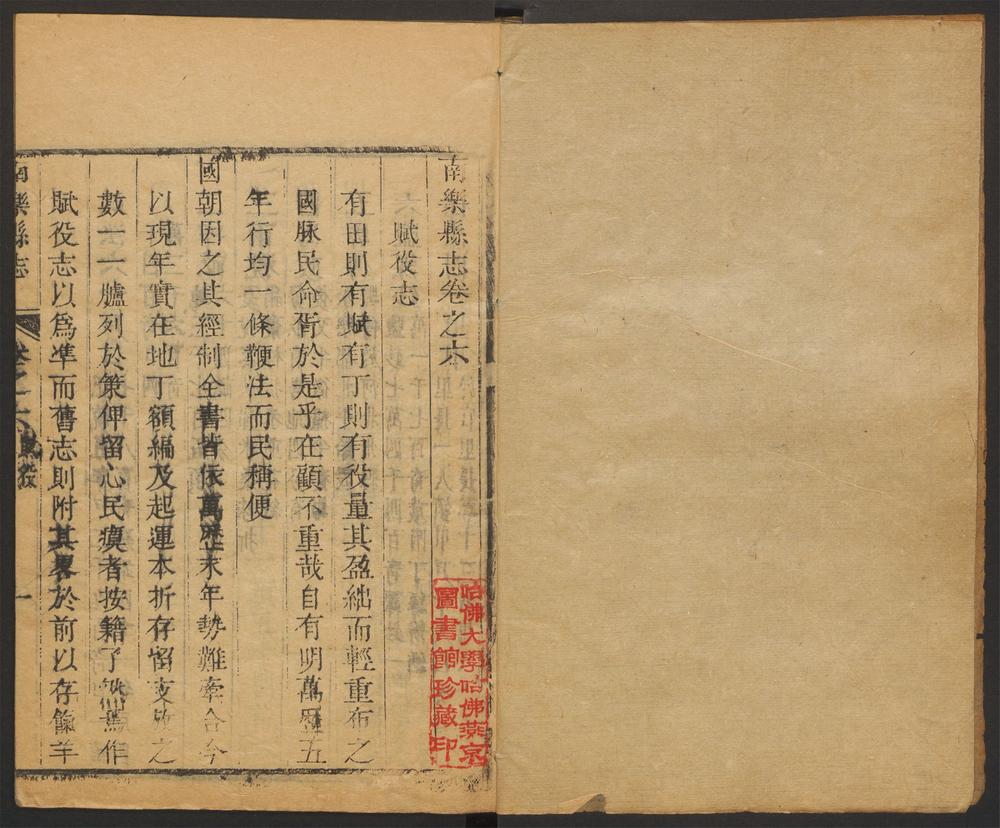 南樂縣志卷之六
賦役志
有田則有賦有丁則有役量其盈絀而輕重布之
國脉民命胥於是乎在顧不重哉自有明萬曆五
年行均一條鞭法而民稱便
國朝因之其經制全書皆依萬歷末年勢難牽合今
以現年實在地丁額編及起運本折存留支放之
數一一臚列於策俾留心民瘼者按籍了然焉作
賦役志以爲凖而舊志則附其畧於前以存餼羊
南樂縣志 卷之六 賦役 一
哈佛大學哈佛燕京
圖書館珍藏印